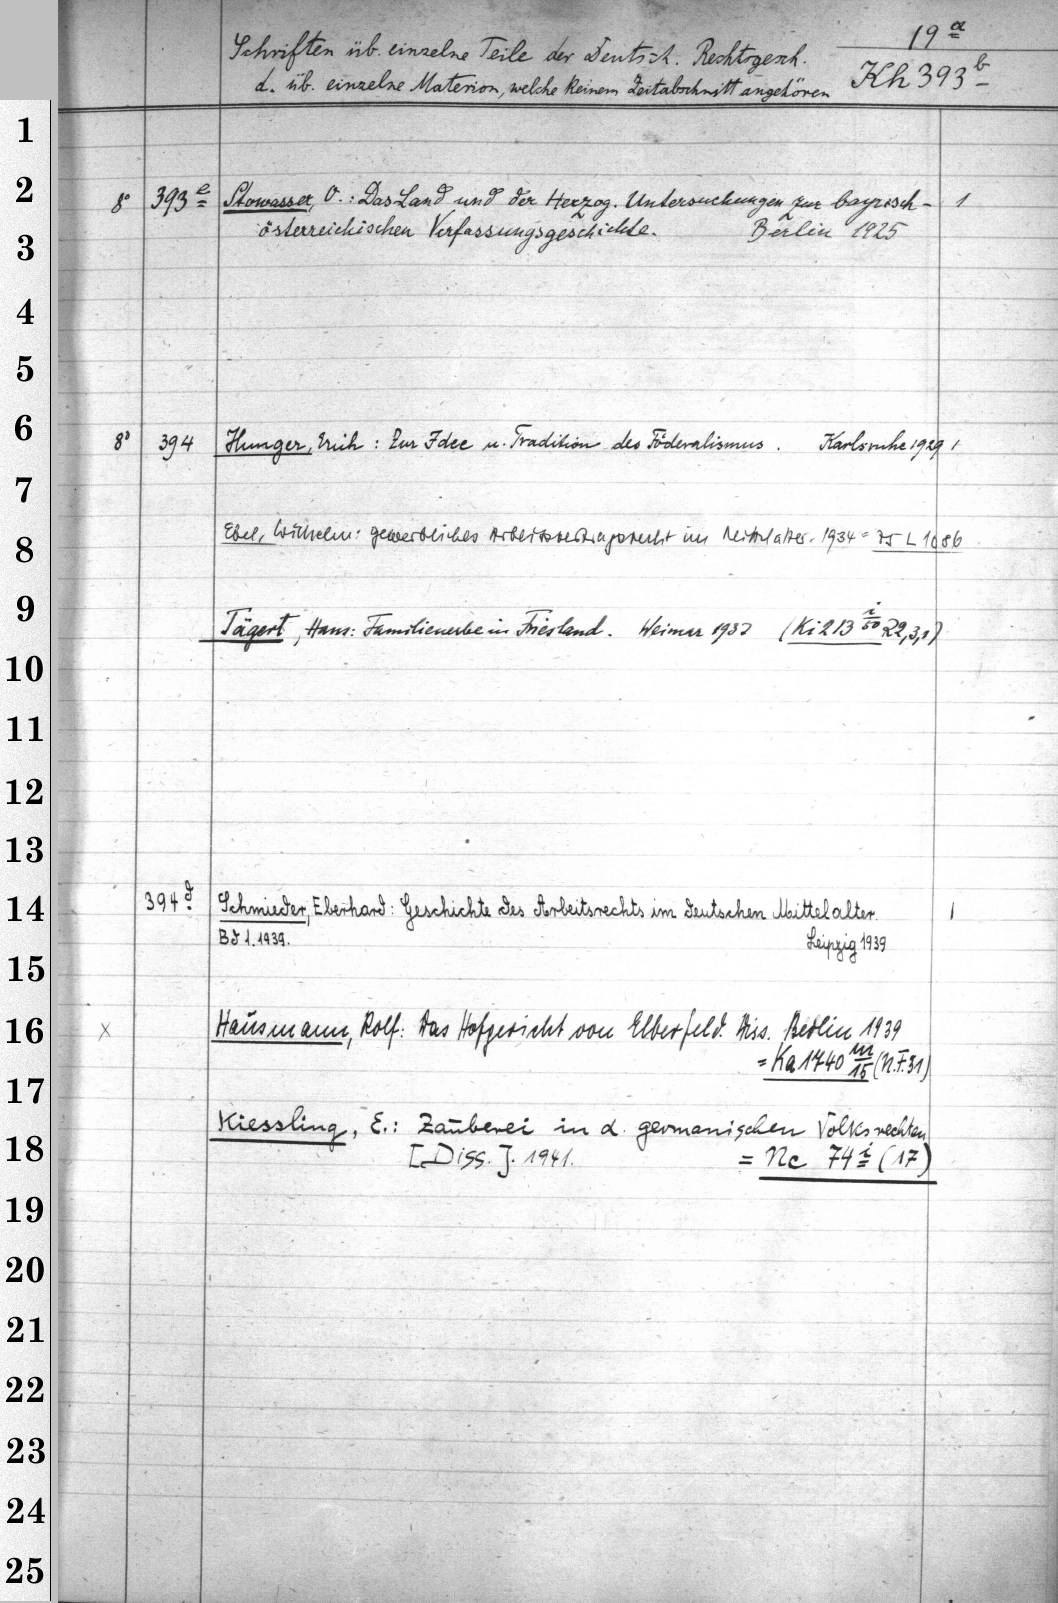 19 a
Schriften üb. einzelne Teile der Deutsch. Rechtsgesch.
d. üb. einzelne Materien, welche keinem Zeitabschnitt angehören
Kh 393 b
1
2
8° 393 e Stowasser, O.: Das Land und der Herzog. Untersuchungen zur bayrisch- 1
3
österreichischen Verfassungsgeschichte. Berlin 1925
4
5
6
8° 394 Hunger, Erich: Zur Idee u. Tradition des Föderalismus. Karlsruhe 1929 1
7
8
Ebel, Wilhelm: gewerbliches Arbeitsvertragsrecht im Mittelalter. 1934 = 75 L 1086
9
Tägert, Hans: Familienerbe in Friesland. Weimar 1937 (Ki 213 i/50 R2,3,1)
10
11
12
13
14
394 d Schmieder, Eberhard: Geschichte des Arbeitsrechts im deutschen Mittelalter. 1
Bd 1. 1939. Leipzig 1939
15
16
x Hausmann, Rolf: Das Hofgericht von Elberfeld. Diss. Berlin 1939
= Ka 1740 m/15 (N.F.31)
17
Kiessling, E.: Zauberei in d. germanischen Volksrechten
18
[Diss.]. 1941. = Nc 74 i (17)
19
20
21
22
23
24
25